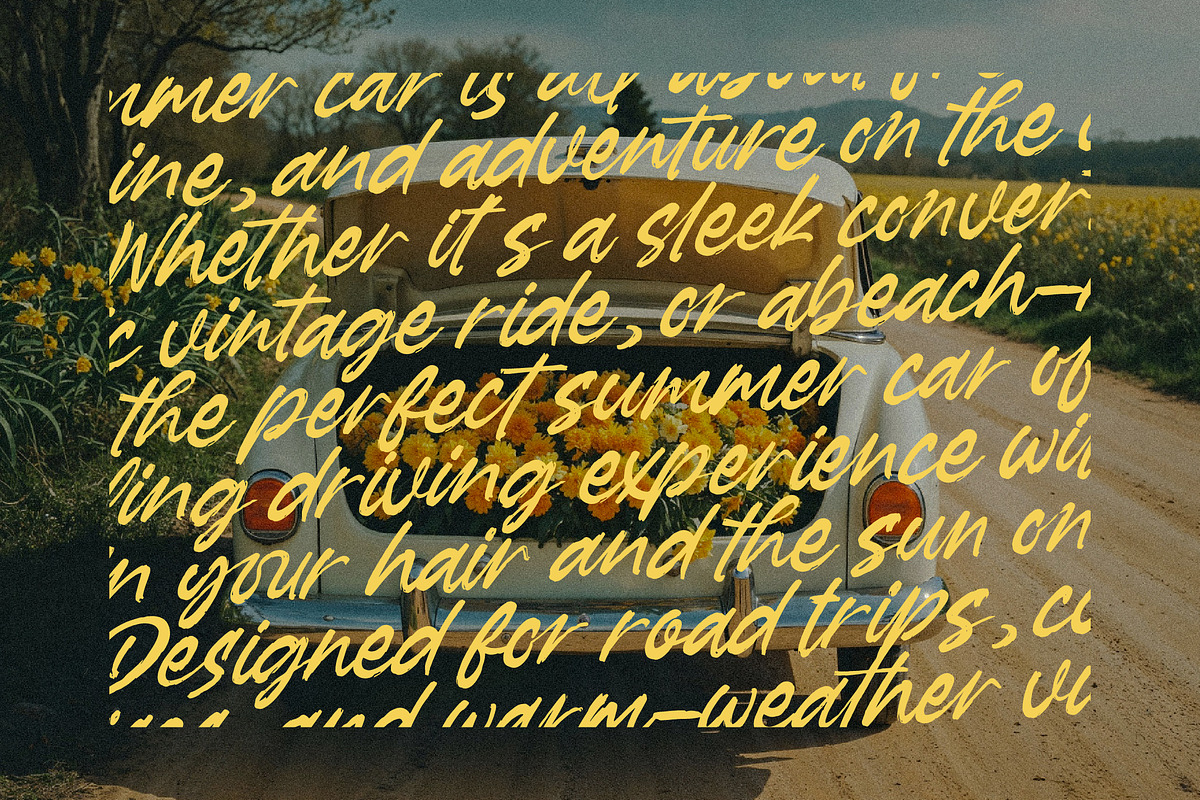 mmer car is all about
ine, and adventure on the
Whether it's a sleek conver
c vintage ride, or abeach-
the perfect summer car of
ling driving experience wi
n your hair and the sun on
Designed for road trips, c
and warm-weather v